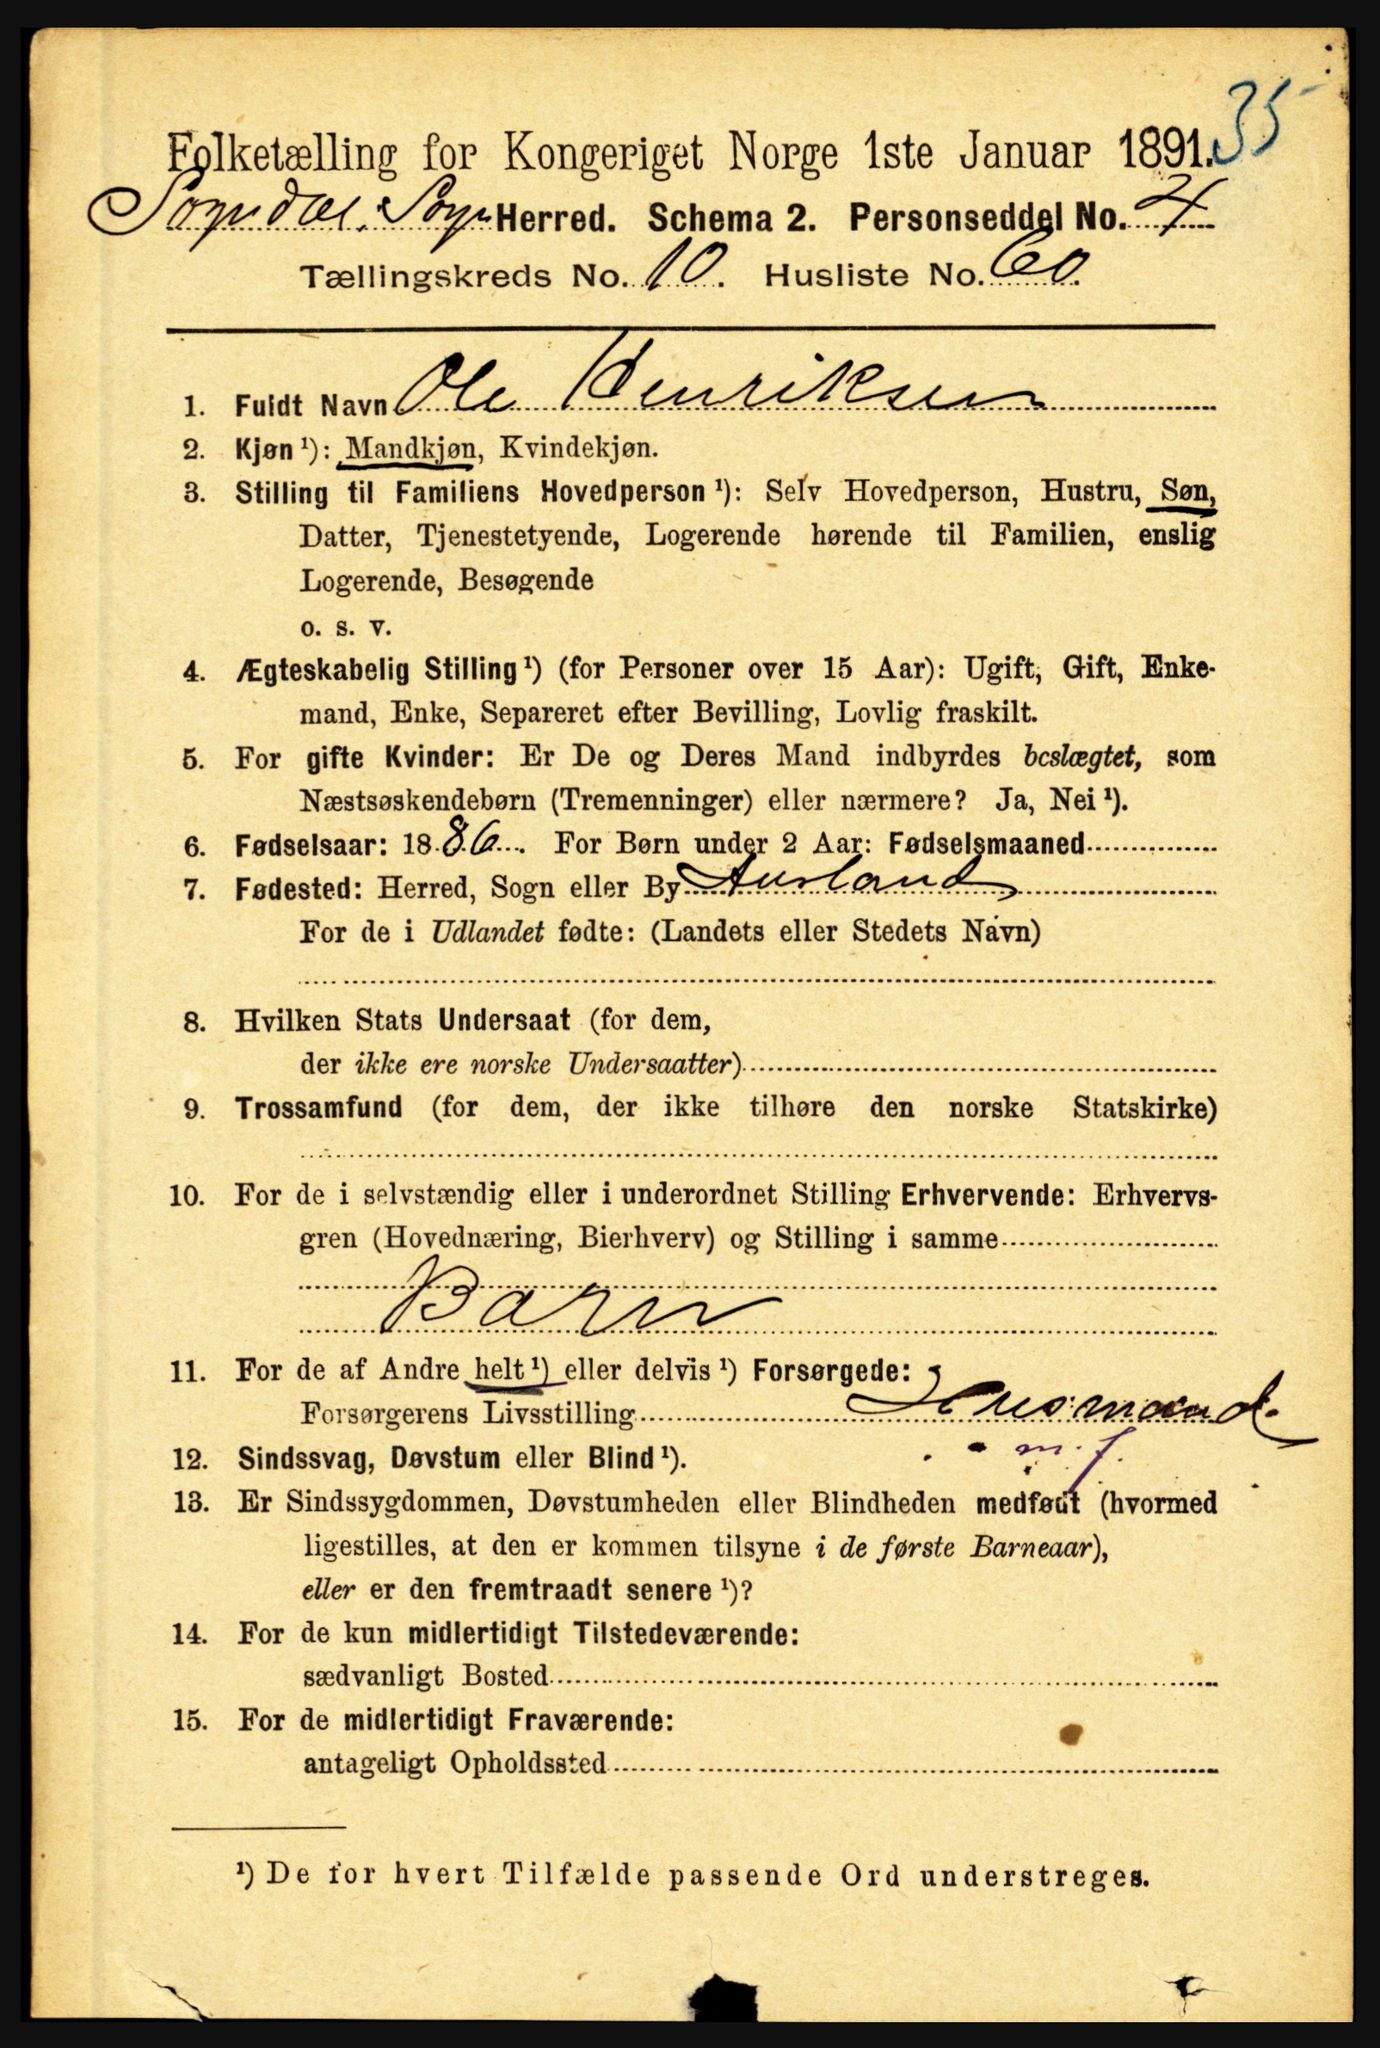 35
Folketælling for Kongeriget Norge 1ste Januar 1891.
Sogndal, Sogn Herred. Schema 2. Personseddel No. 4
Tællingskreds No. 10. Husliste No. 60.
1. Fuldt Navn Ole Henriksen
2. Kjøn ¹): Mandkjøn, Kvindekjøn.
3. Stilling til Familiens Hovedperson ¹): Selv Hovedperson, Hustru, Søn,
Datter, Tjenestetyende, Logerende hørende til Familien, enslig
Logerende, Besøgende
o. s. v.
4. Ægteskabelig Stilling ¹) (for Personer over 15 Aar): Ugift, Gift, Enke-
mand, Enke, Separeret efter Bevilling, Lovlig fraskilt.
5. For gifte Kvinder: Er De og Deres Mand indbyrdes beslægtet, som
Næstsøskendebørn (Tremenninger) eller nærmere? Ja, Nei ¹).
6. Fødselsaar: 1886. For Børn under 2 Aar: Fødselsmaaned
7. Fødested: Herred, Sogn eller By Aurland
For de i Udlandet fødte: (Landets eller Stedets Navn)
8. Hvilken Stats Undersaat (for dem,
der ikke ere norske Undersaatter)
9. Trossamfund (for dem, der ikke tilhøre den norske Statskirke)
10. For de i selvstændig eller i underordnet Stilling Erhvervende: Erhvervs-
gren (Hovednæring, Bierhverv) og Stilling i samme
Barn
11. For de af Andre helt ¹) eller delvis ¹) Forsørgede:
Forsørgerens Livsstilling Husmand.
m. j.
12. Sindssvag, Døvstum eller Blind ¹).
13. Er Sindssygdommen, Døvstumheden eller Blindheden medfødt (hvormed
ligestilles, at den er kommen tilsyne i de første Barneaar),
eller er den fremtraadt senere ¹)?
14. For de kun midlertidigt Tilstedeværende:
sædvanligt Bosted
15. For de midlertidigt Fraværende:
antageligt Opholdssted
¹) De for hvert Tilfælde passende Ord understreges.